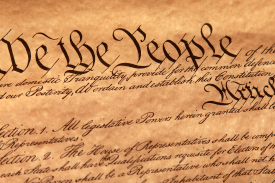 We the People of the
ure domestic Tranquility, provide for the common defence
d our Posterity, do ordain and establish this Constitution
Article
Section. 1. All legislative Powers herein granted shall be
Representatives.
Section. 2. The House of Representatives shall be comp
each State shall have Qualifications requisite for Electors of
No Person shall be a Representative who shall not
Inhabitant of that State